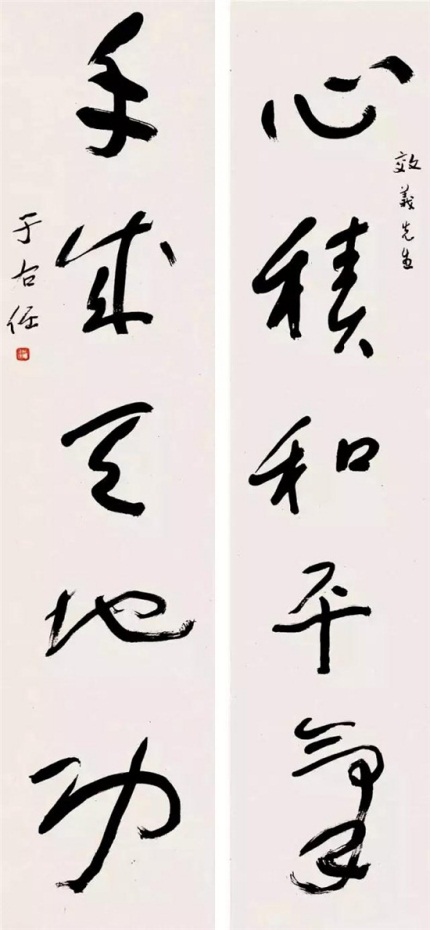 效義先生
心積和平氣
手成天地功
于右任